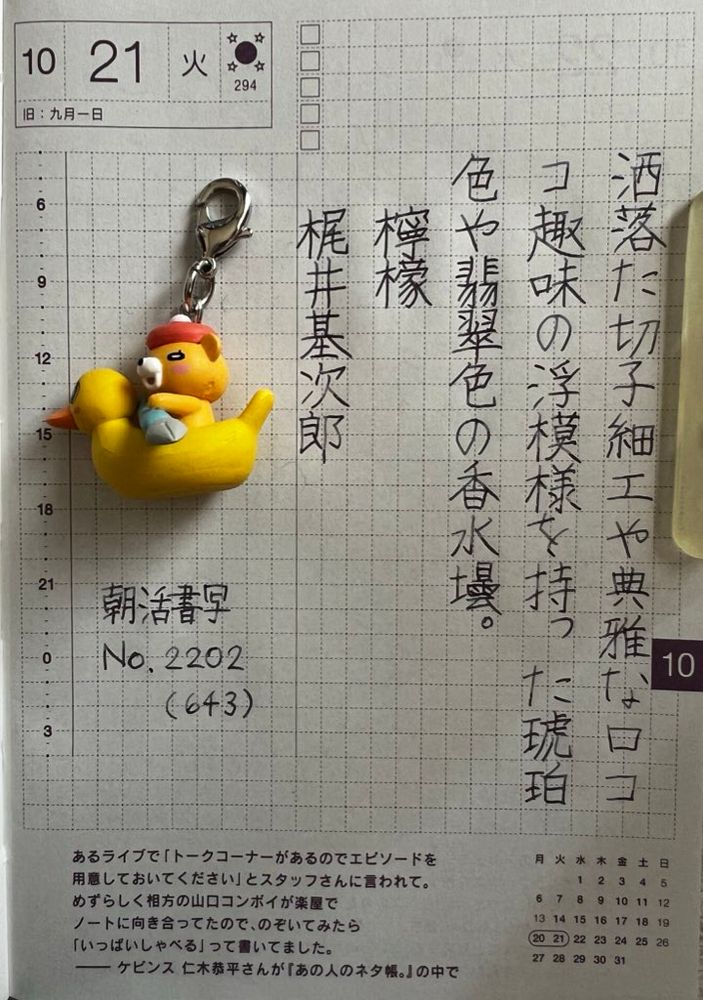 10 21 火
294
旧：九月一日
洒落た切子細工や典雅なロコ
コ趣味の浮模様を持った琥珀
色や翡翠色の香水壜。
檸檬
梶井基次郎
6
9
12
15
18
21
0
3
朝活書写
No. 2202
(643)
10
あるライブで「トークコーナーがあるのでエピソードを
用意しておいてください」とスタッフさんに言われて。
めずらしく相方の山口コンボイが楽屋で
ノートに向き合ってたので、のぞいてみたら
「いっぱいしゃべる」って書いてました。
―― ケビンス 仁木恭平さんが『あの人のネタ帳。』の中で
月 火 水 木 金 土 日
1 2 3 4 5
6 7 8 9 10 11 12
13 14 15 16 17 18 19
20 21 22 23 24 25 26
27 28 29 30 31